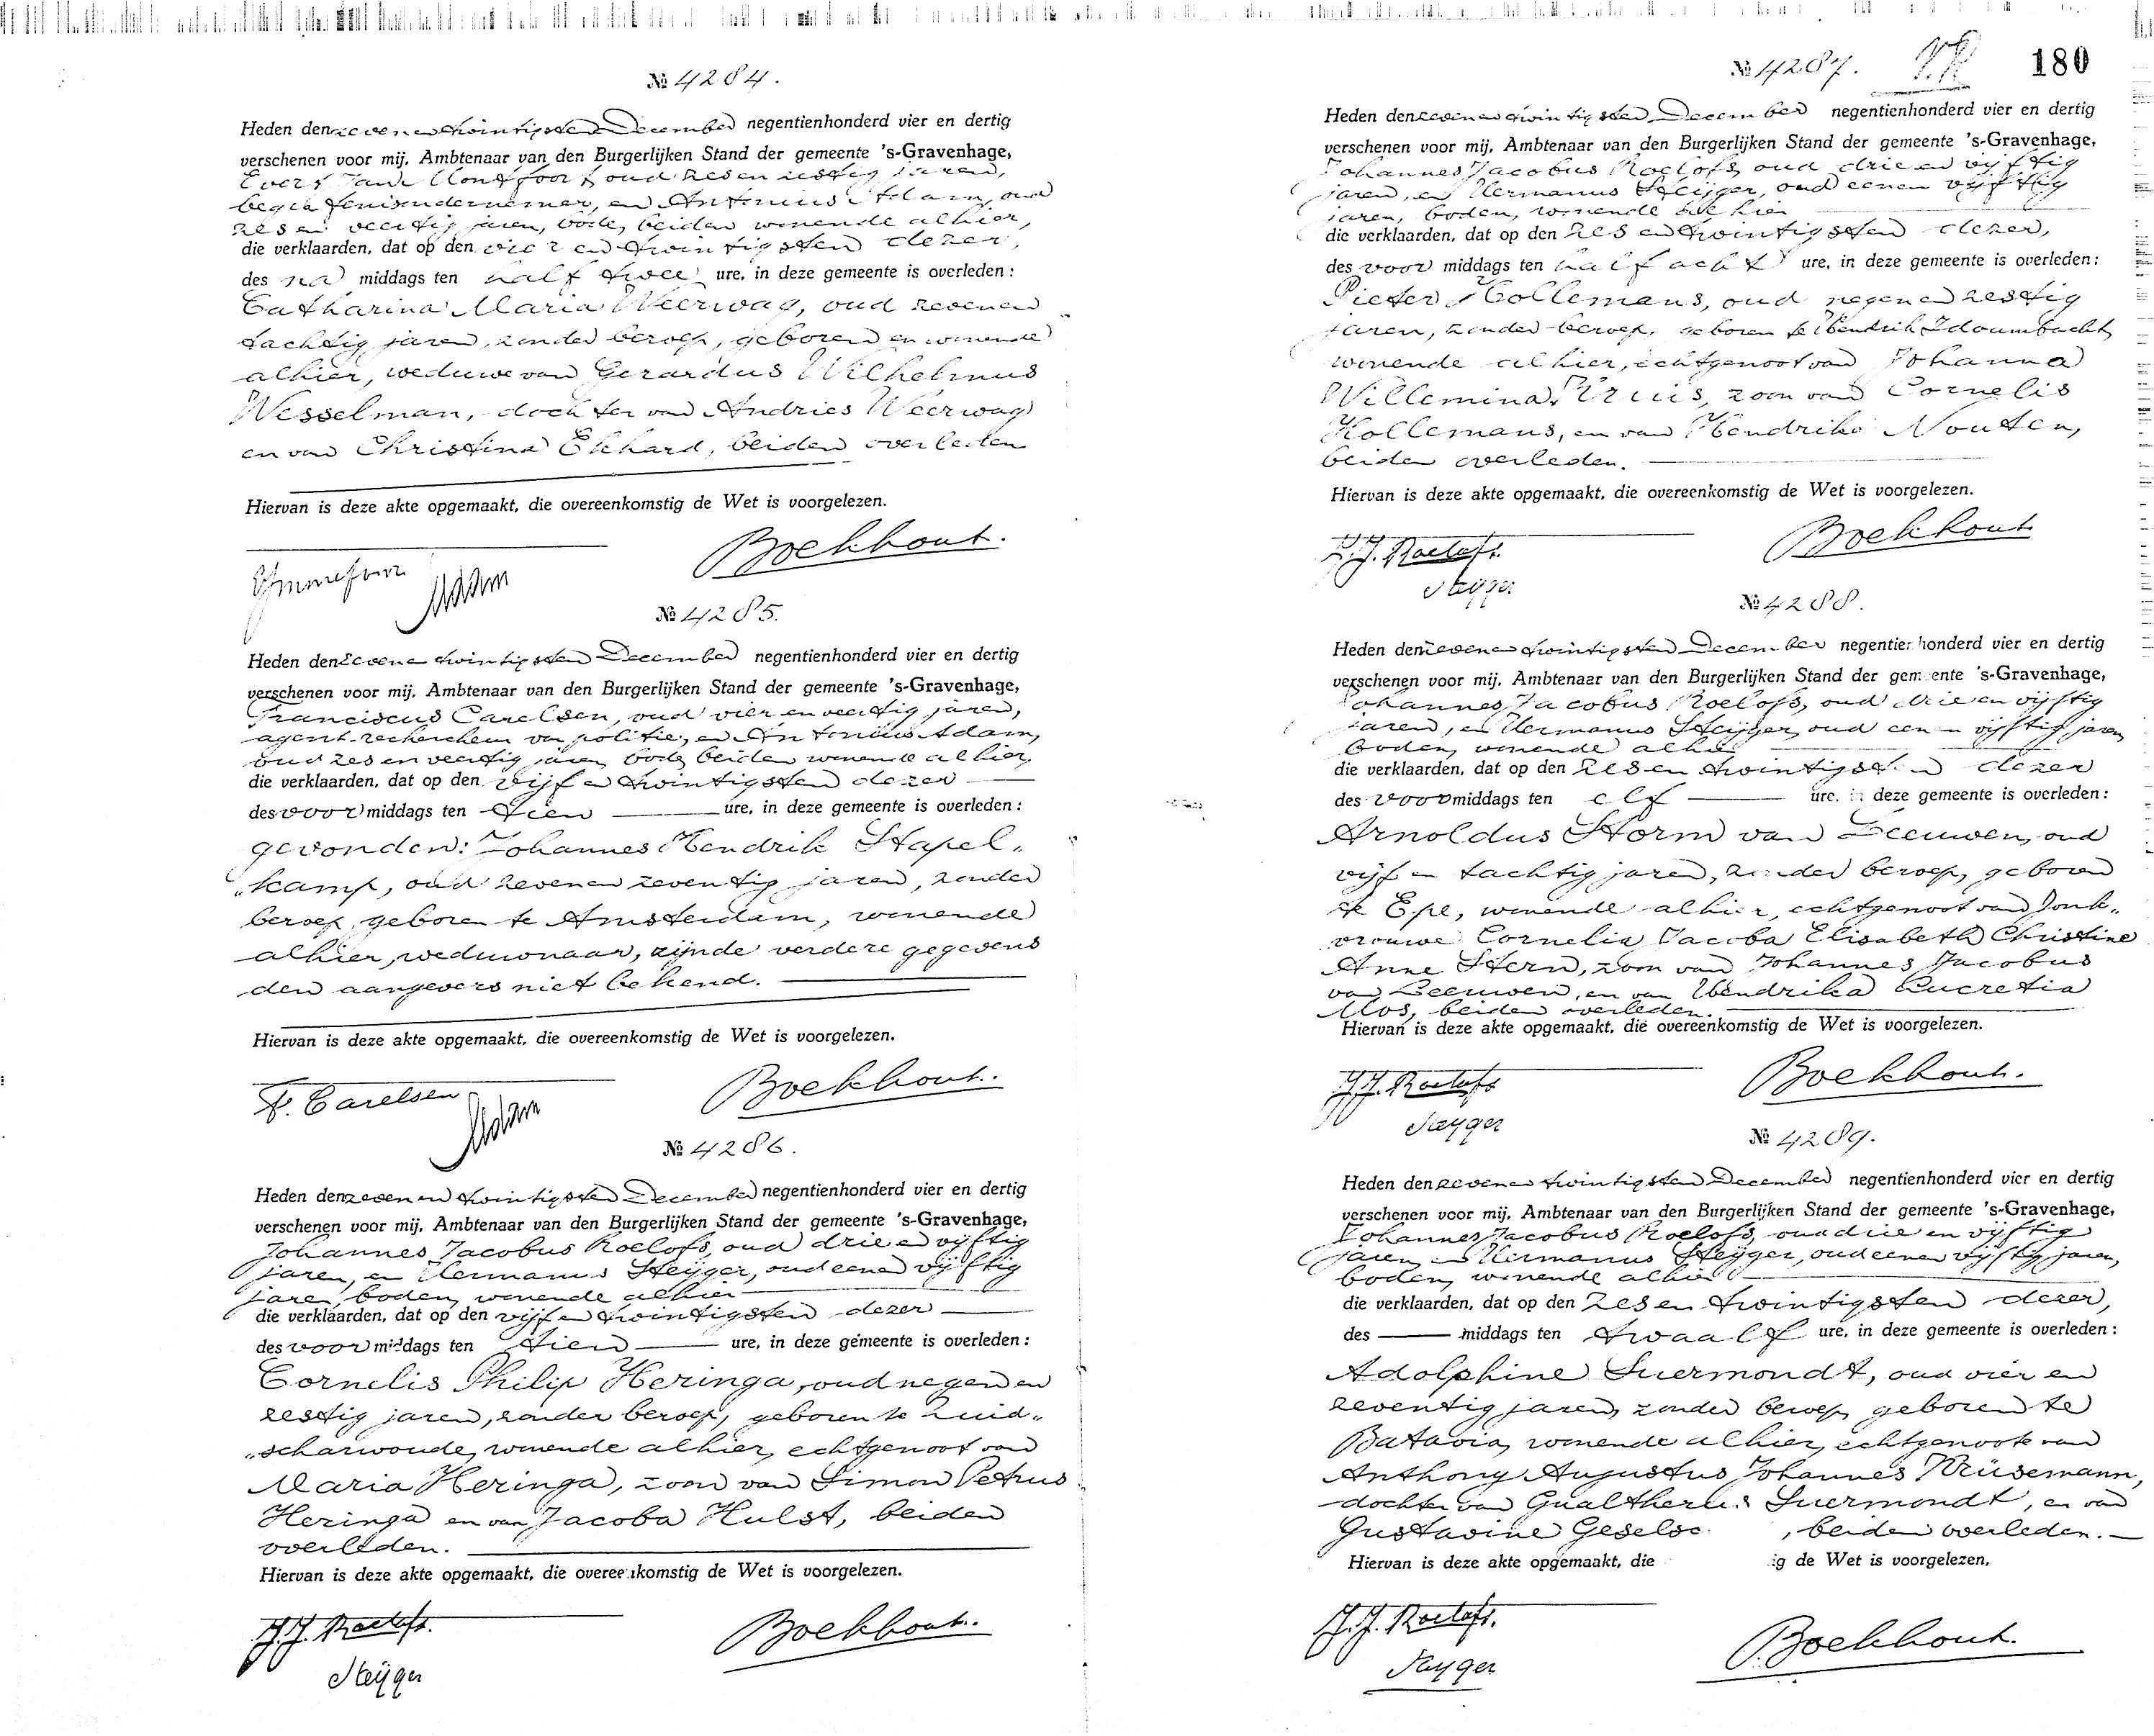 № 4284.
Heden den zevenentwintigsten December negentienhonderd vier en dertig
verschenen voor mij, Ambtenaar van den Burgerlijken Stand der gemeente 's-Gravenhage,
Evert Montfoort, oud zes en zestig jaren,
begrafenisondernemer, en Antonius Adam, oud
zes en veertig jaren, bode, beiden wonende alhier,
die verklaarden, dat op den vier en twintigsten dezer,
des na middags ten half twee ure, in deze gemeente is overleden:
Catharina Maria Weerwag, oud zevenen
tachtig jaren, zonder beroep, geboren en wonende
alhier, weduwe van Gerardus Wilhelmus
Wesselman, dochter van Andries Weerwag
en van Christina Ekhard, beiden overleden
Hiervan is deze akte opgemaakt, die overeenkomstig de Wet is voorgelezen.
Boekhout.
Adam
№ 4285.
Heden den zevenentwintigsten December negentienhonderd vier en dertig
verschenen voor mij, Ambtenaar van den Burgerlijken Stand der gemeente 's-Gravenhage,
Franciscus Carelsen, oud vier en veertig jaren,
agent-rechercheur van politie, en Antonius Adam,
oud zes en veertig jaren, bode, beiden wonende alhier,
die verklaarden, dat op den vijfentwintigsten dezer
des voor middags ten tien ure, in deze gemeente is overleden:
gevonden: Johannes Hendrik Stapel„
„kamp, oud zevenenzeventig jaren, zonder
beroep, geboren te Amsterdam, wonende
alhier, weduwnaar, zijnde verdere gegevens
den aangevers niet bekend.
Hiervan is deze akte opgemaakt, die overeenkomstig de Wet is voorgelezen.
F. Carelsen
Adam
Boekhout.
№ 4286.
Heden den zevenentwintigsten December negentienhonderd vier en dertig
verschenen voor mij, Ambtenaar van den Burgerlijken Stand der gemeente 's-Gravenhage,
Johannes Jacobus Roelofs, oud drie en vijftig
jaren, en Hermanus Steijger, oud eenen vijftig
jaren, boden, wonende alhier
die verklaarden, dat op den vijfentwintigsten dezer
des voor middags ten tien ure, in deze gemeente is overleden:
Cornelis Philip Heringa, oud negen en
zestig jaren, zonder beroep, geboren te Zuid„
„scharwoude, wonende alhier, echtgenoot van
Maria Heringa, zoon van Simon Petrus
Heringa en van Jacoba Hulst, beiden
overleden.
Hiervan is deze akte opgemaakt, die overeenkomstig de Wet is voorgelezen.
J.J. Roelofs.
Steijger
Boekhout.
№ 4287.
180
Heden den zevenentwintigsten December negentienhonderd vier en dertig
verschenen voor mij, Ambtenaar van den Burgerlijken Stand der gemeente 's-Gravenhage,
Johannes Jacobus Roelofs, oud drie en vijftig
jaren, en Hermanus Steijger, oud eenen vijftig
jaren, boden, wonende alhier
die verklaarden, dat op den zes en twintigsten dezer,
des voor middags ten half acht ure, in deze gemeente is overleden:
Pieter Hollemans, oud negen en zestig
jaren, zonder beroep, geboren te Hendrik Ido ambacht
wonende alhier, echtgenoot van Johanna
Willemina Kruis, zoon van Cornelis
Hollemans, en van Hendrika Nouten,
beiden overleden.
Hiervan is deze akte opgemaakt, die overeenkomstig de Wet is voorgelezen.
J.J. Roelofs.
Steijger
Boekhout
№ 4288.
Heden den zevenentwintigsten December negentienhonderd vier en dertig
verschenen voor mij, Ambtenaar van den Burgerlijken Stand der gemeente 's-Gravenhage,
Johannes Jacobus Roelofs, oud drie en vijftig
jaren, en Hermanus Steijger, oud een en vijftig jaren
boden, wonende alhier
die verklaarden, dat op den zes en twintigsten dezer
des voor middags ten elf ure, in deze gemeente is overleden:
Arnoldus Storm van Leeuwen, oud
vijf en tachtig jaren, zonder beroep, geboren
te Epe, wonende alhier, echtgenoot van Jonk„
vrouwe Cornelia Jacoba Elisabeth Christine
Anne Stern, zoon van Johannes Jacobus
van Leeuwen, en van Hendrika Lucretia
Mos, beiden overleden.
Hiervan is deze akte opgemaakt, die overeenkomstig de Wet is voorgelezen.
J.J. Roelofs
Steijger
Boekhout.
№ 4289.
Heden den zevenentwintigsten December negentienhonderd vier en dertig
verschenen voor mij, Ambtenaar van den Burgerlijken Stand der gemeente 's-Gravenhage,
Johannes Jacobus Roelofs, oud drie en vijftig
jaren, en Hermanus Steijger, oud eenen vijftig jaren,
boden, wonende alhier
die verklaarden, dat op den zes en twintigsten dezer,
des middags ten twaalf ure, in deze gemeente is overleden:
Adolphine Suermondt, oud vier en
zeventig jaren, zonder beroep, geboren te
Batavia, wonende alhier, echtgenoote van
Anthony Augustus Johannes Krüsemann,
dochter van Gualtherus Suermondt, en van
Gustavine Gesels , beiden overleden.
Hiervan is deze akte opgemaakt, die ig de Wet is voorgelezen.
J.J. Roelofs.
Steijger
Boekhout.